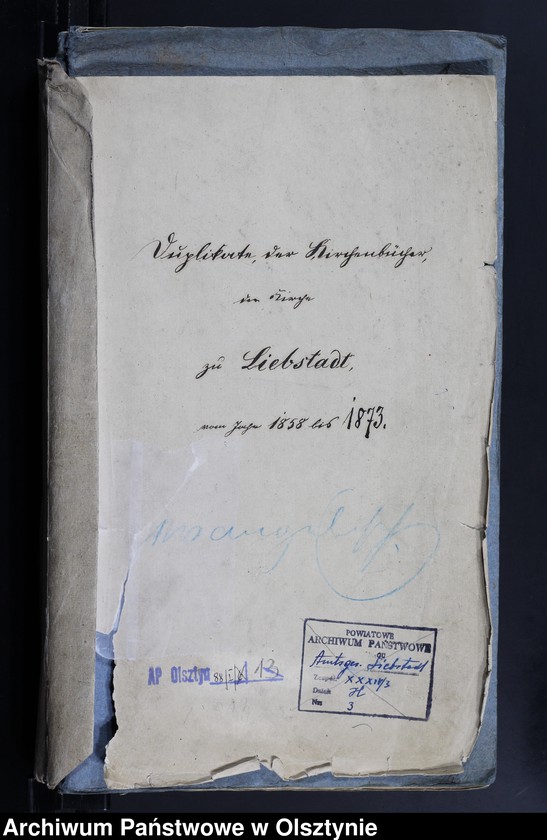 Duplikate, der Kirchenbücher,
der Kirche
zu Liebstadt,
vom Jahre 1858 bis 1873.
AP Olsztyn 88/
POWIATOWE
ARCHIWUM PAŃSTWOWE
Amtsger. Liebstadt
Zespół: XXXIV/3
Dział H
Nr: 3
Archiwum Państwowe w Olsztynie